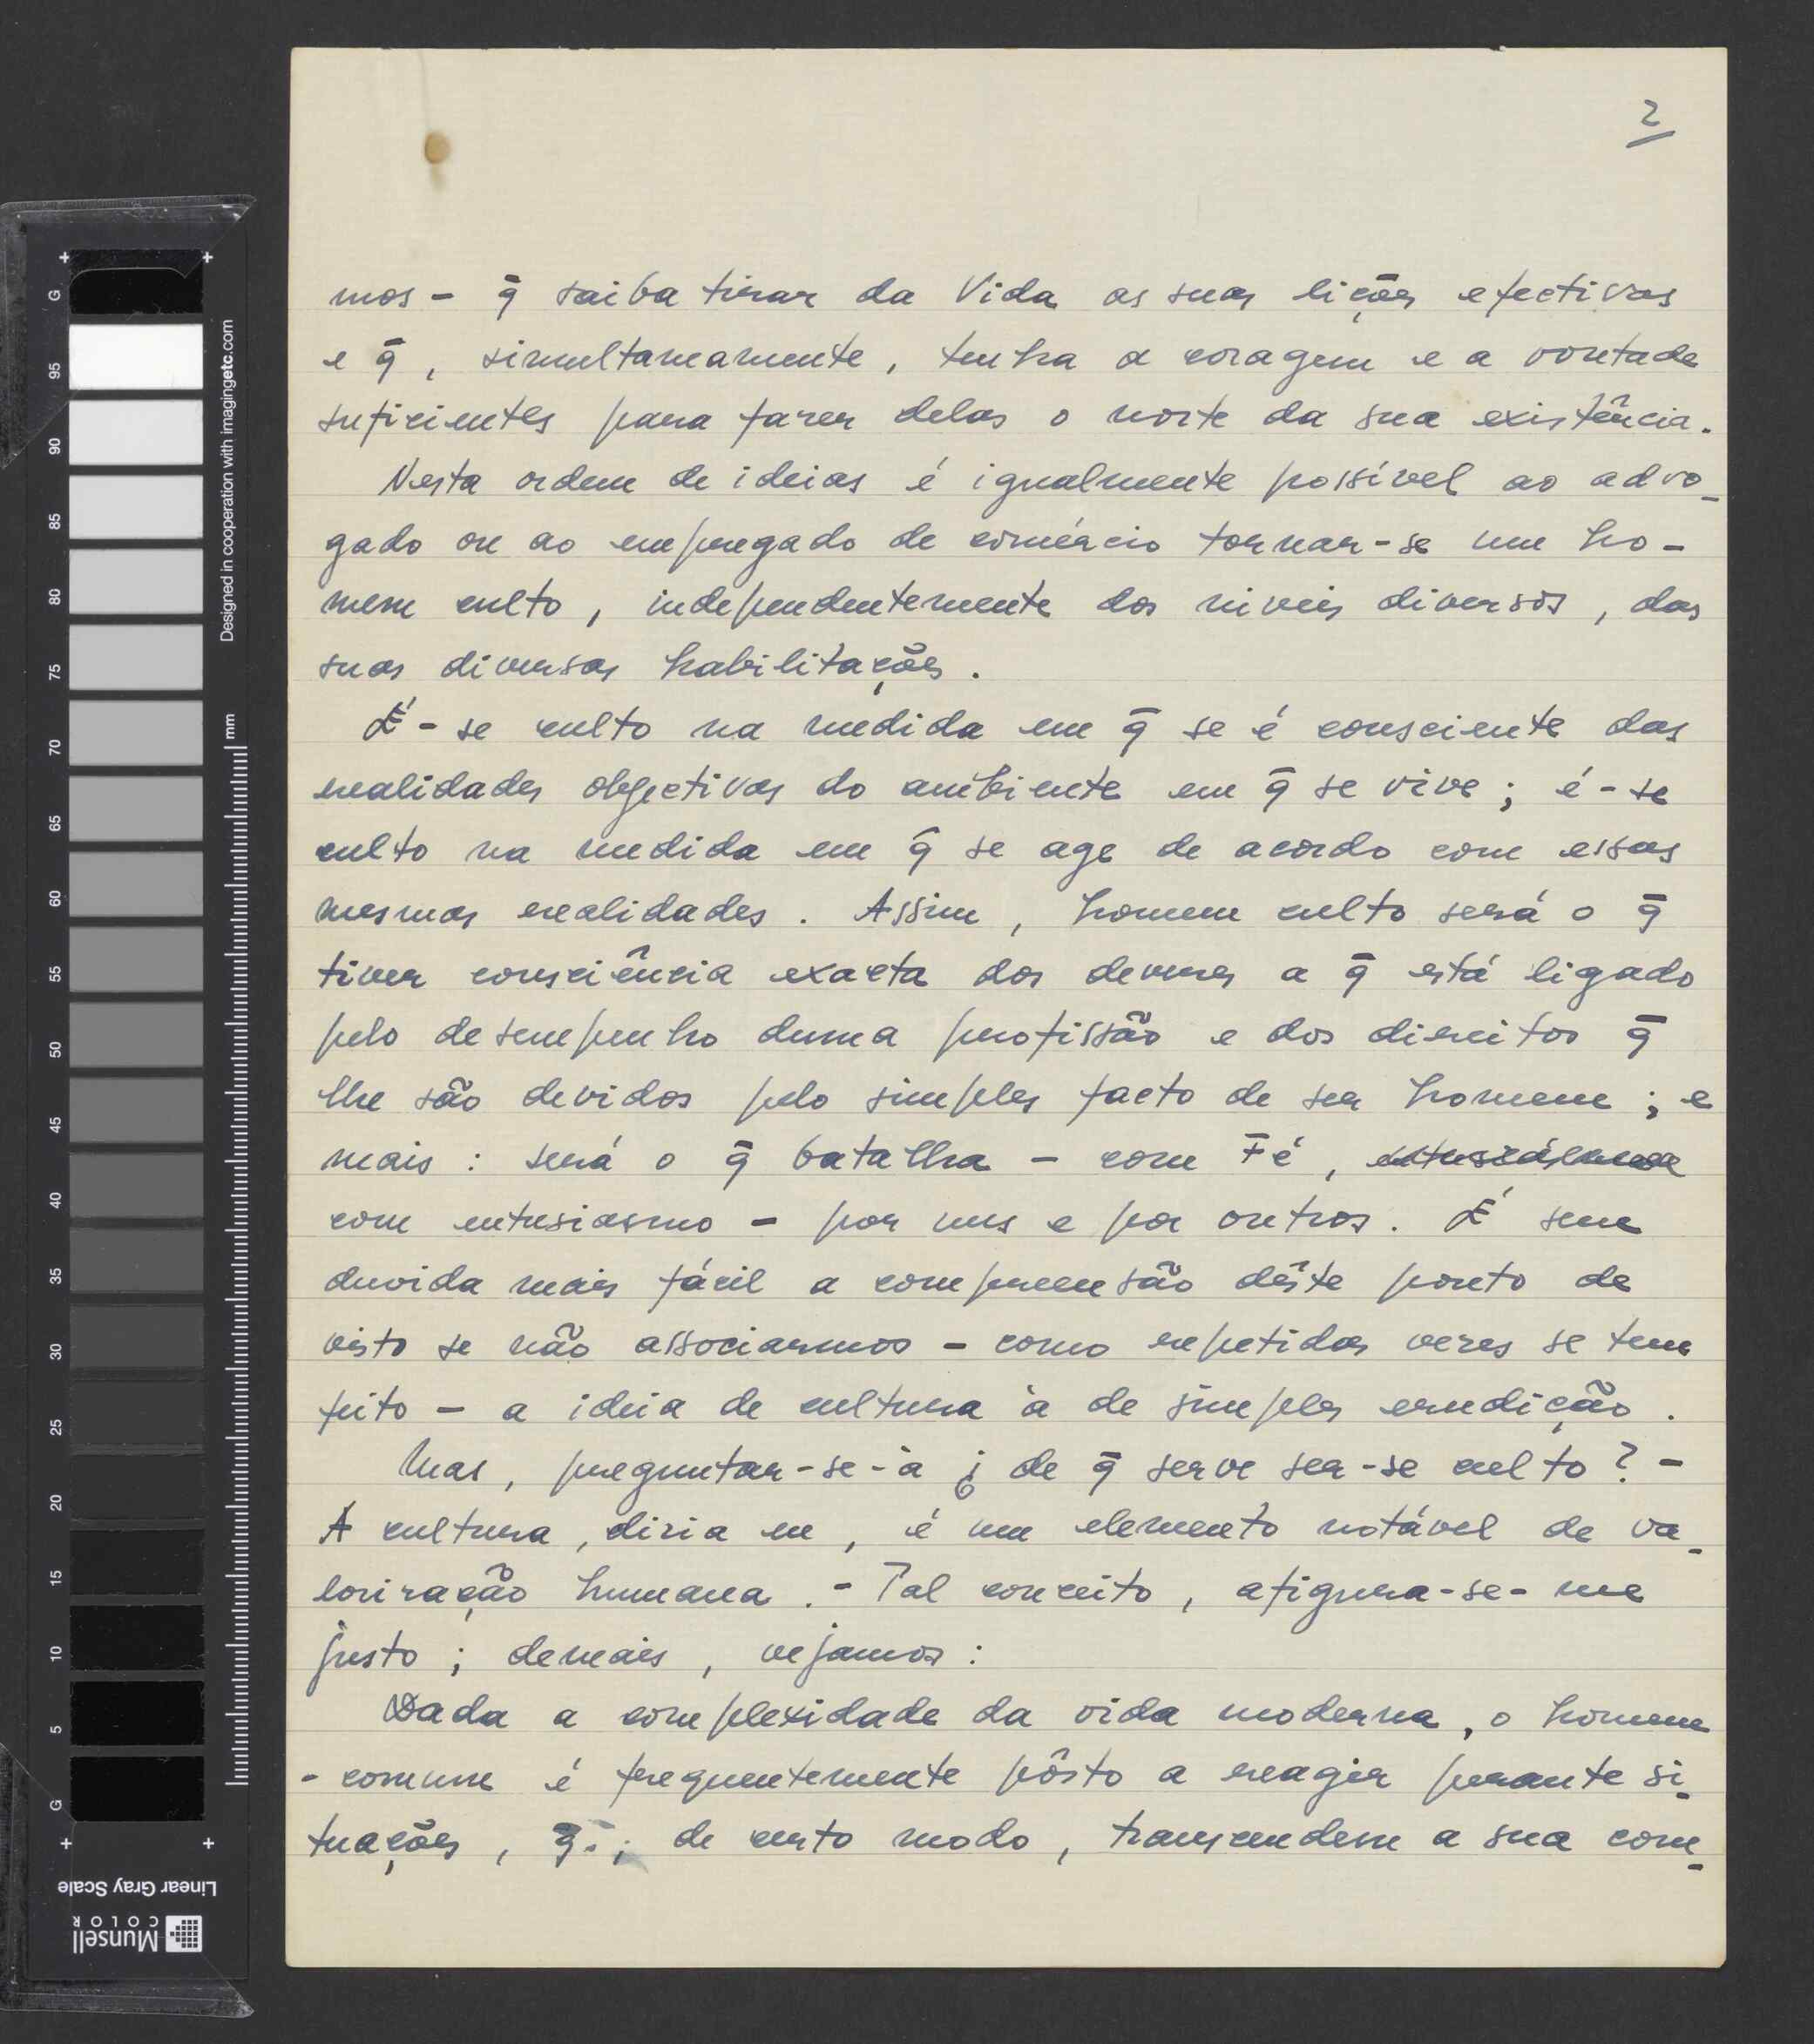 2
mos - q̄ saiba tirar da Vida as suas lições efectivas
e q̄, simultaneamente, tenha a coragem e a vontade
suficientes para fazer delas o norte da sua existência.
Nesta ordem de ideias é igualmente possível ao advo-
gado ou ao empregado de comércio tornar-se um ho-
mem culto, independentemente dos niveis diversos, das
suas diversas habilitações.
É-se culto na medida em q̄ se é consciente das
realidades objectivas do ambiente em q̄ se vive; é-se
culto na medida em q̄ se age de acordo com essas
mesmas realidades. Assim, homem culto será o q̄
tiver consciência exacta dos deveres a q̄ está ligado
pelo desempenho duma profissão e dos direitos q̄
lhe são devidos pelo simples facto de ser homem; e
mais: será o q̄ batalha - com Fé,
com entusiasmo - por uns e por outros. É sem
duvida mais fácil a compreensão dêste ponto de
visto se não associarmos - como repetidas vezes se tem
feito - a ideia de cultura à de simples erudição.
Mas, preguntar-se-à ¿ de q̄ serve ser-se culto? -
A cultura, diria eu, é um elemento notável de va-
lorização humana. - Tal conceito, afigura-se-me
justo; demais, vejamos:
Dada a complexidade da vida moderna, o homem
-comum é frequentemente pôsto a reagir perante si-
tuações, q̄, de certo modo, transcendem a sua com-
Designed in cooperation with imagingetc.com
mm
G
95
90
85
80
75
70
65
60
55
50
45
40
35
30
25
20
15
10
5
G
Linear Gray Scale
Munsell
COLOR